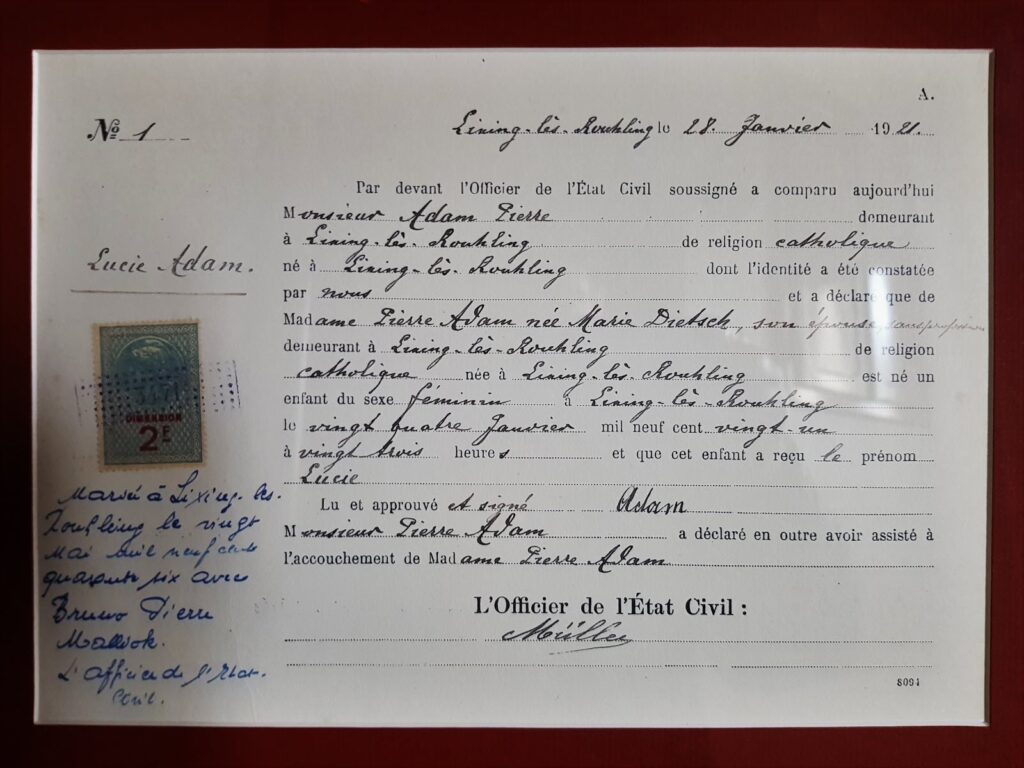 A.
№ 1
Lixing-lès-Rouhling le 28. Janvier 1921.
Par devant l'Officier de l'État Civil soussigné a comparu aujourd'hui
Monsieur Adam Pierre demeurant
à Lixing-lès-Rouhling de religion catholique
né à Lixing-lès-Rouhling dont l'identité a été constatée
par nous et a déclaré que de
Madame Pierre Adam née Marie Dietsch, son épouse, sans profession
demeurant à Lixing-lès-Rouhling de religion
catholique née à Lixing-lès-Rouhling est né un
enfant du sexe féminin à Lixing-lès-Rouhling
le vingt quatre Janvier mil neuf cent vingt-un
à vingt trois heures et que cet enfant a reçu le prénom
Lucie
Lu et approuvé et signé Adam
Monsieur Pierre Adam a déclaré en outre avoir assisté à
l'accouchement de Madame Pierre Adam
L'Officier de l'État Civil :
Müller
8094
Lucie Adam.
DIMENSION
2F
Mariée à Lixing-lès-
Rouhling le vingt
Mai mil neuf cent
quarante six avec
Bruno Pierre
L'officier de l'Etat-
Civil.